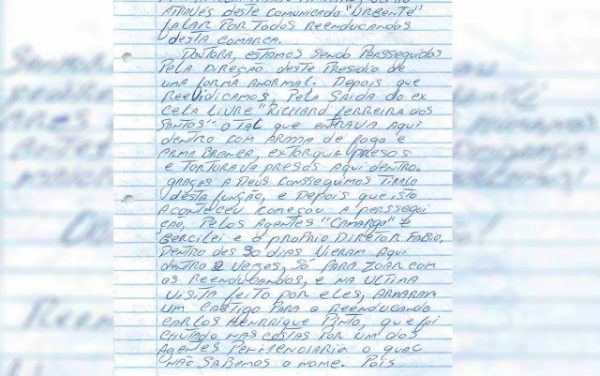 ATRAVÉS DESTE COMUNICADO "URGENTE"
FALAR POR TODOS REENDUCANDOS
DESTA COMARCA.
DOUTORA, ESTAMOS SENDO PERSSEGUIDOS
PELA DIREÇÃO DESTE PRESIDIO DE
UMA FORMA ANORMAL. DEPOIS QUE
REEVIDICAMOS, PELA SAÍDA DO EX
CELA LIVRE "RICHARD FERREIRA DOS
SANTOS" O TAL QUE ENTRAVA AQUI
DENTRO COM ARMA DE FOGO E
ARMA BRANCA, EXTORQUIA PRESOS
E TORTURAVA PRESOS AQUI DENTRO.
GRAÇAS A DEUS CONSSEGUIMOS TIRALO
DESTA FUNÇÃO, E DEPOIS QUE ISTO
ACONTECEU COMEÇOU A PERSSEGUI
ÇÃO, PELOS AGENTES "CAMARGO" E
BERCILEI E O PRÓPRIO DIRETOR FABIO,
DENTRO DES 30 DIAS VIERAM AQUI
DENTRO 2 VEZES, SÓ PARA ZOAR COM
OS REENDUCANDOS, E NA ULTIMA
VISITA FEITO POR ELES, ARMARAM
UM CASTIGO PARA O REENDUCANDO
CARLOS HENRRIQUE PINTO, QUE FOI
NAS COSTAS POR UM DOS
AGENTES PENITENCIARIA O QUAL
NÃO SABEMOS O NOME. POIS